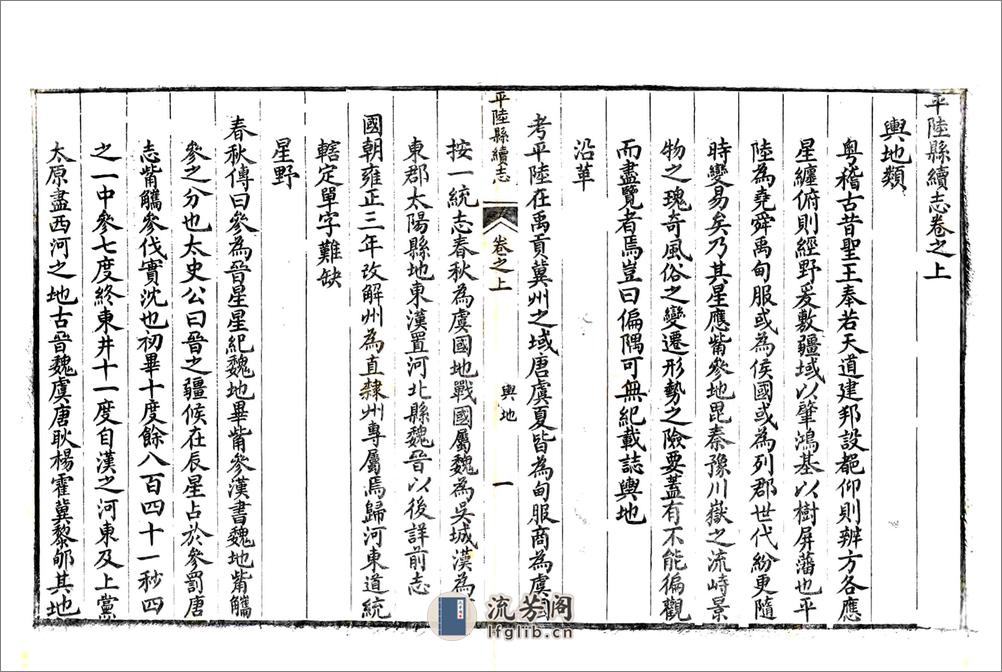 平陸縣續志卷之上
輿地類
粵稽古昔聖王奉若天道建邦設郡仰則辨方各應
星纏俯則經野爰敷疆域以肇鴻基以樹屏藩也平
陸為堯舜禹甸服或為侯國或為列郡世代紛更隨
時變易矣乃其星應觜參地毘秦豫川嶽之流峙景
物之瑰奇風俗之變遷形勢之險要蓋有不能徧觀
而盡覽者焉豈曰偏隅可無紀載誌輿地
沿革
考平陸在禹貢冀州之域唐虞夏皆為甸服商為虞國
平陸縣續志
卷之上
輿地
一
按一統志春秋為虞國地戰國屬魏為吳城漢為
東郡太陽縣地東漢置河北縣魏晉以後詳前志
國朝雍正三年改解州為直隸州專屬焉歸河東道統
轄定單字難缺
星野
春秋傳曰參為晉星星紀魏地畢觜參漢書魏地觜觿
參之分也太史公曰晉之疆候在辰星占於參罰唐
志觜觿參伐實沈也初畢十度餘八百四十一秒四
之一中參七度終東井十一度自漢之河東及上黨
太原盡西河之地古晉魏虞唐耿楊霍冀黎郇其地
流芳阁
lfglib.cn